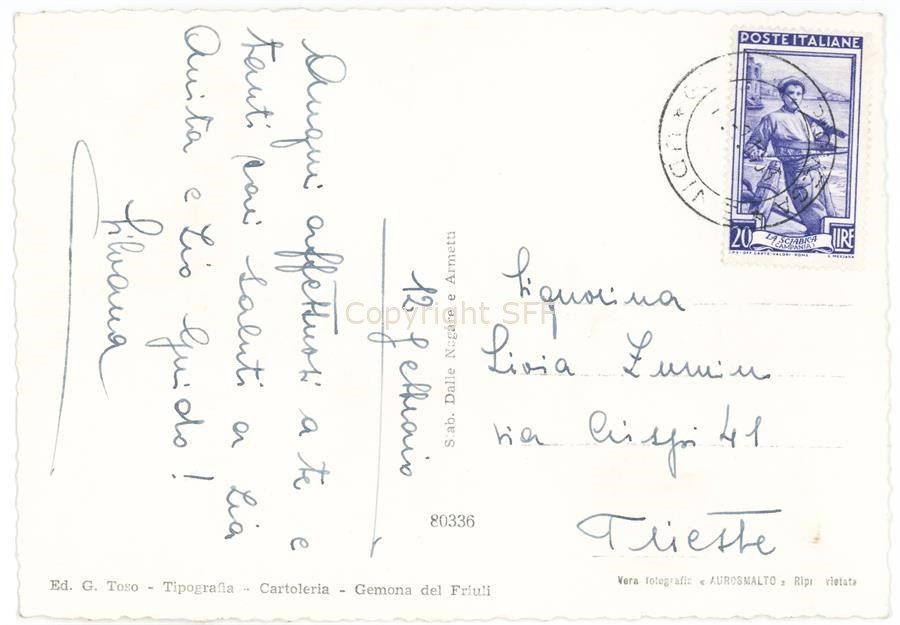 Auguri affettuosi a te e
tanti cari saluti a zia
Anita e zio Guido!
Silvana
12 Gennaio
Stab. Dalle Nogare e Armetti
80336
Signorina
Livia Zumin
via Crispi 41
Trieste
POSTE ITALIANE
20 LIRE
LA SCIABICA
(CAMPANIA)
Copyright SFF
Ed. G. Toso - Tipografia - Cartoleria - Gemona del Friuli
Vera fotografia « AUROSMALTO » Ripr vietata